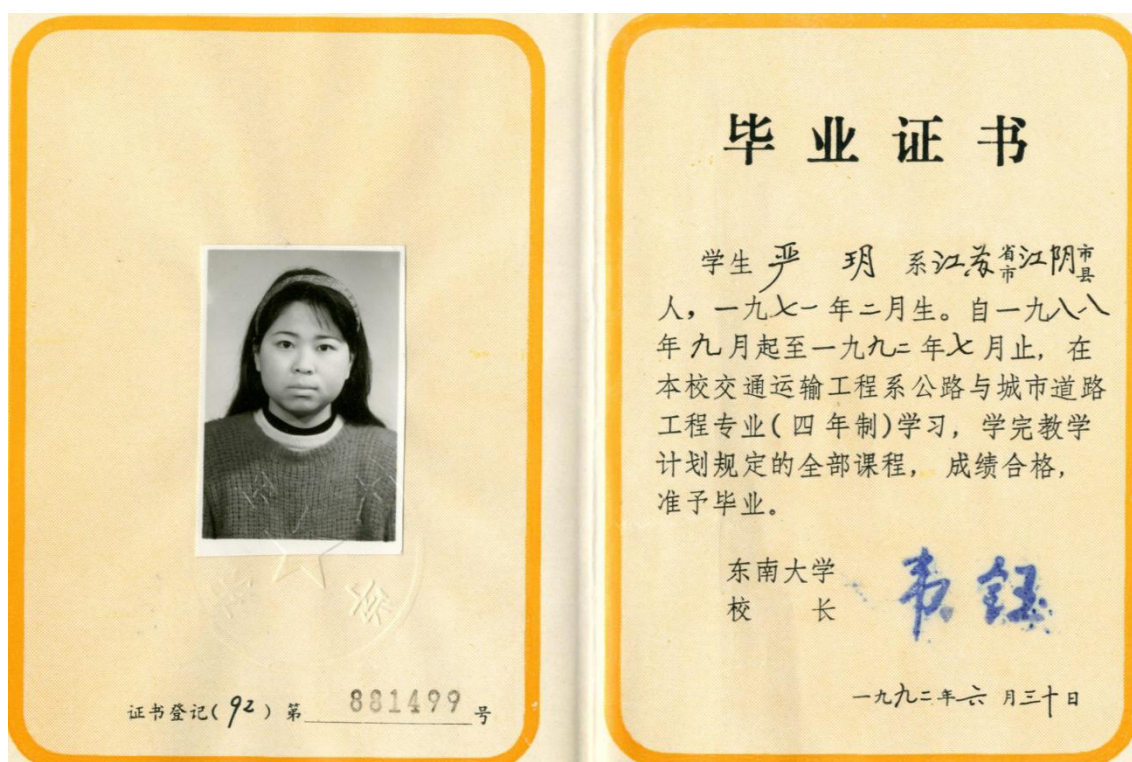 证书登记(92)第 881499 号
毕业证书
学生 严 玥 系江苏省市江阴市县
人,一九七一年二月生。自一九八八
年九月起至一九九二年七月止,在
本校交通运输工程系公路与城市道路
工程专业(四年制)学习,学完教学
计划规定的全部课程,成绩合格,
准予毕业。
东南大学
校 长 韦钰
一九九二年六月三十日